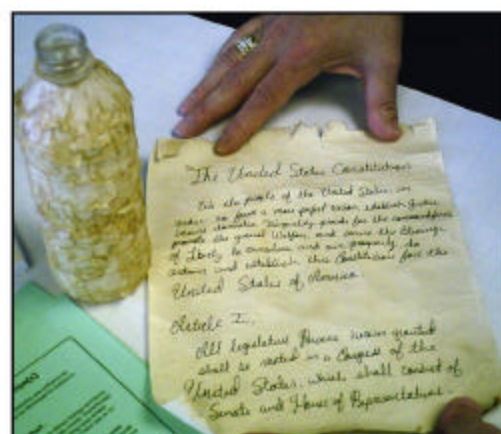 "The United States Constitution
We the people of the United States, in
order to form a more perfect union, establish justice
insure domestic Tranquility, provide for the common defence
promote the general Welfare, and secure the Blessings
of Liberty to ourselves and our prosperity do
ordain and establish this Constitution for the
United States of America.
Article I.
All legislative Powers herein granted
shall be vested in a Congress of the
United States, which shall consist of
Senate and House of Representatives.